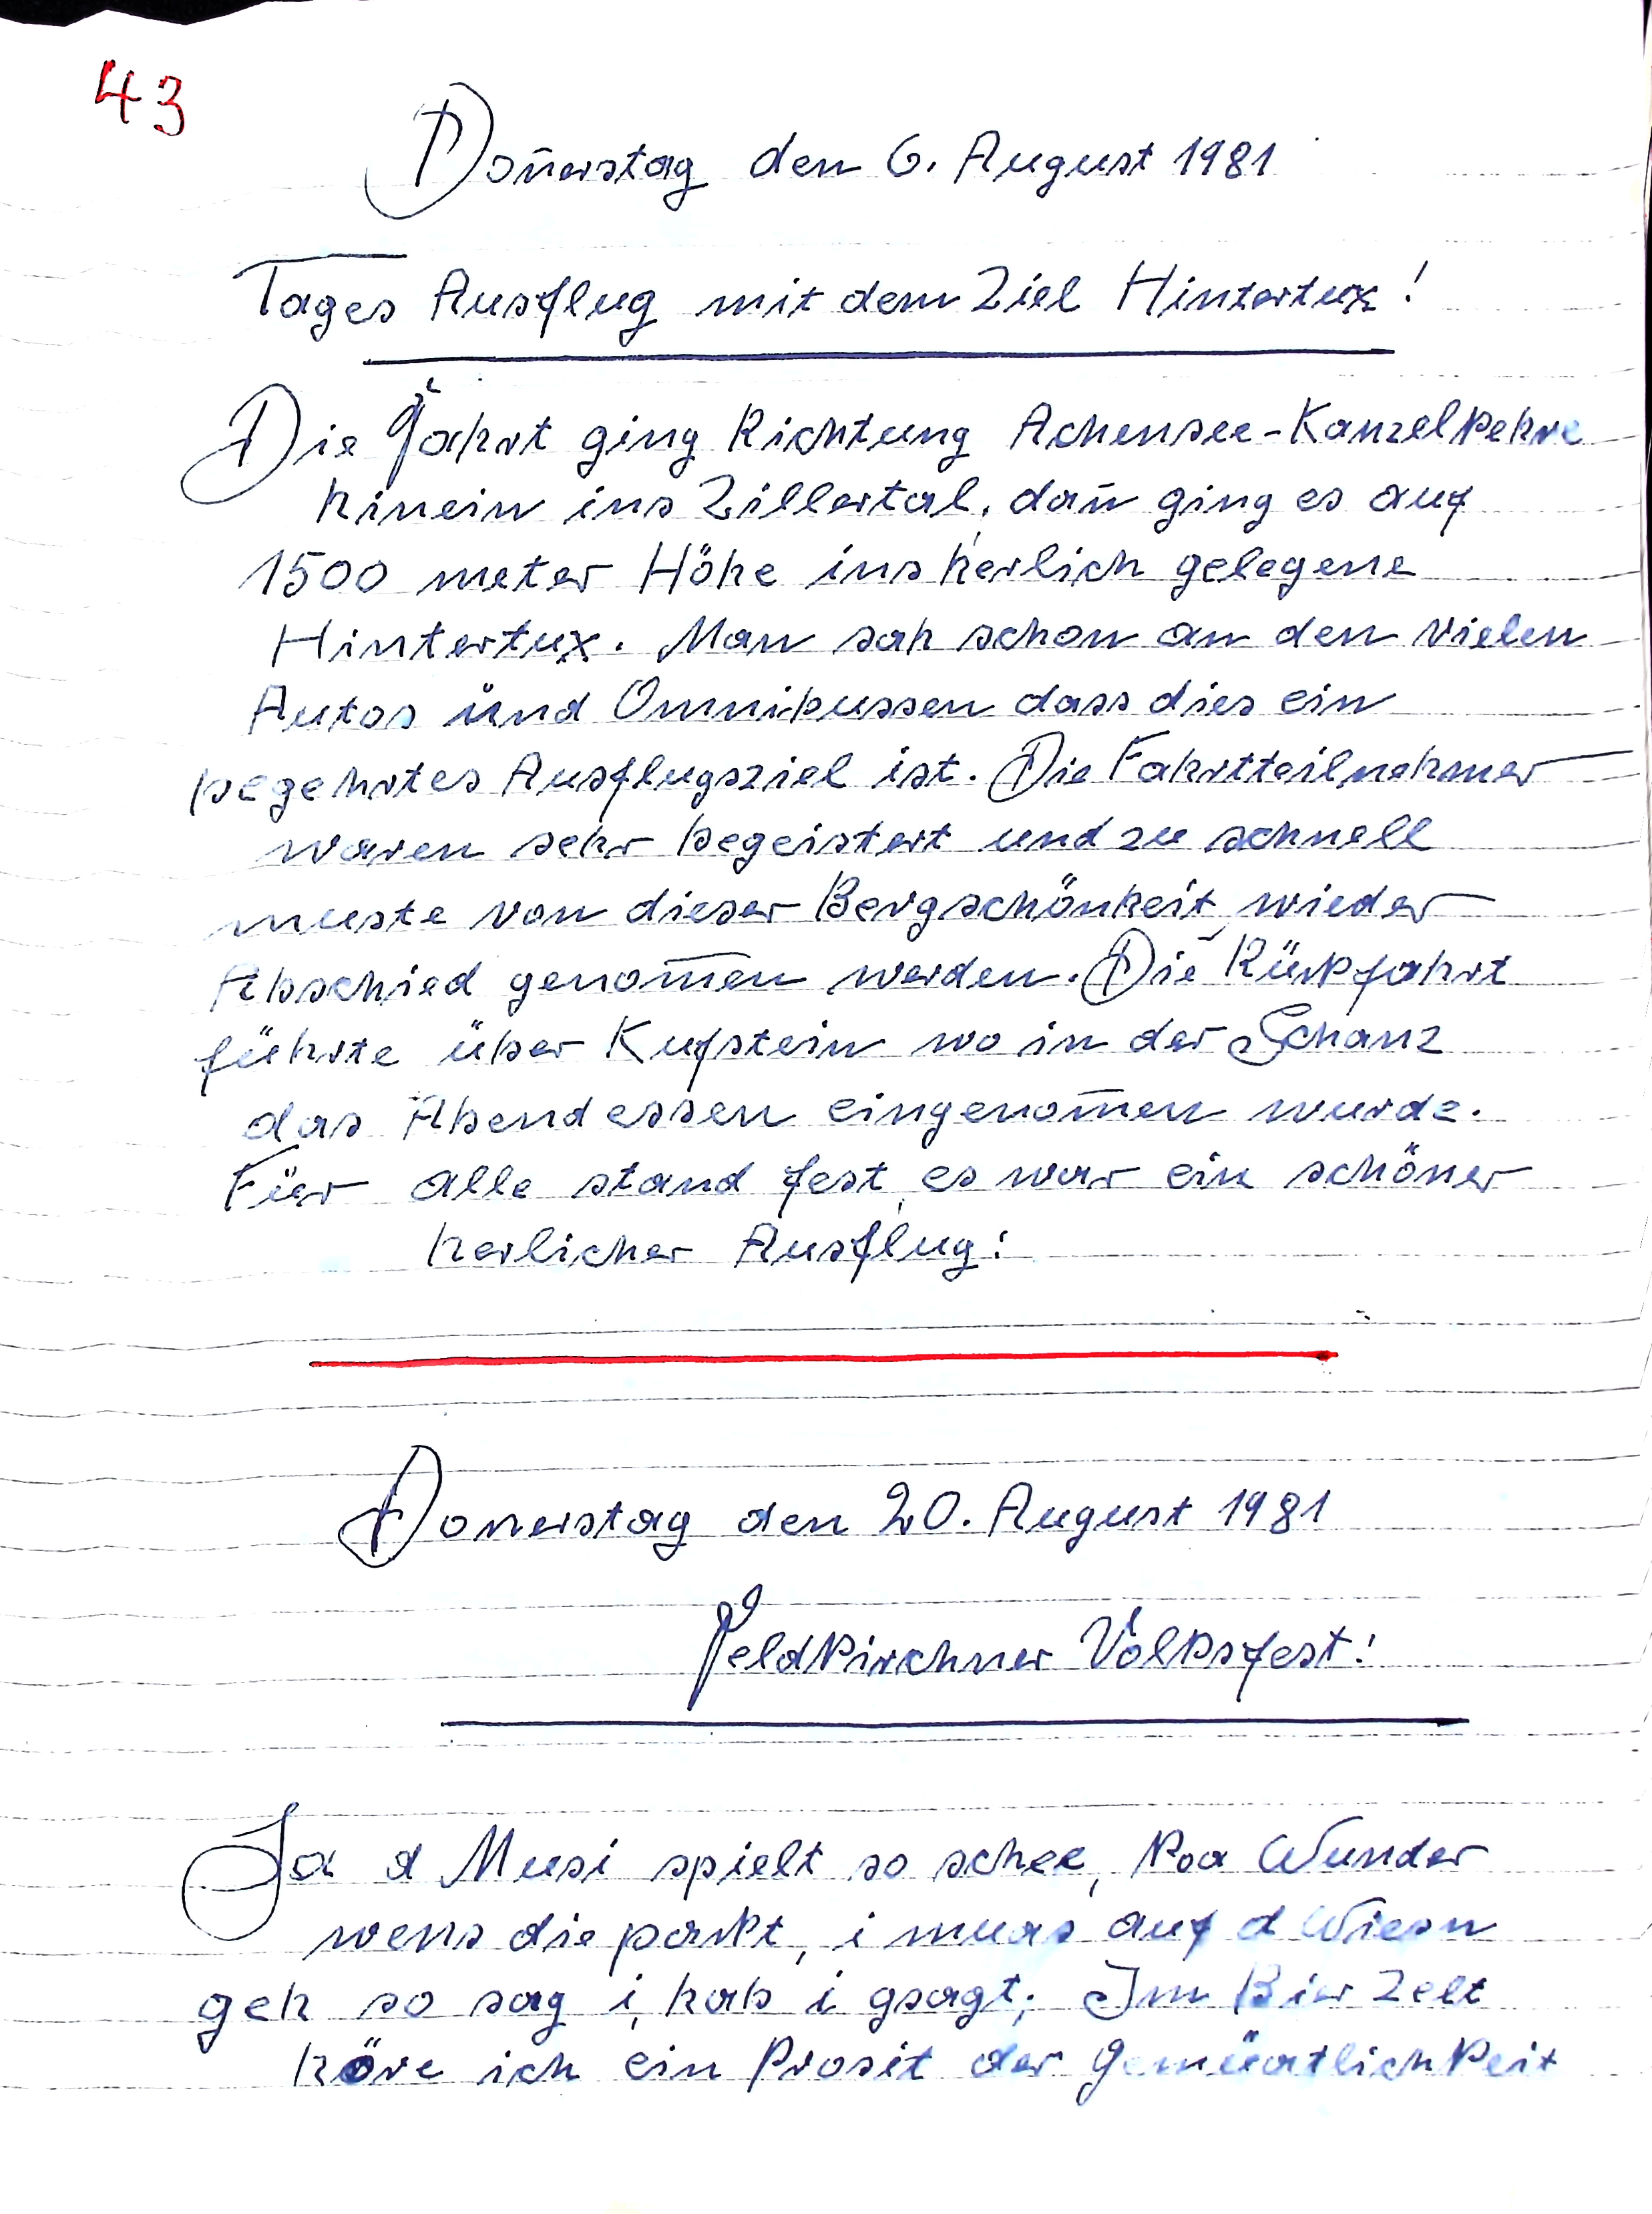 43
Don̄erstag den 6. August 1981
Tages Ausflug mit dem Ziel Hintertux!
Die Fahrt ging Richtung Achensee-Kanzelkehre
hinein ins Zillertal, dan̄ ging es auf
1500 meter Höhe ins herlich gelegene
Hintertux. Man sah schon an den vielen
Autos und Omnibussen dass dies ein
begehrtes Ausflugsziel ist. Die Fahrtteilnehmer
waren sehr begeistert und zu schnell
muste von dieser Bergschönheit wieder
Abschied genom̄en werden. Die Rükfahrt
führte über Kufstein wo in der Schanz
das Abendessen eingenom̄en wurde.
Für alle stand fest, es war ein schöner
herlicher Ausflug!
Donerstag den 20. August 1981
Feldkirchner Volksfest!
Ja d Musi spielt so schee, koa Wunder
wens die pakt, i muas auf d Wiesn
geh so sag i, hab i gsagt; Im Bier Zelt
höre ich ein Prosit der Gemüatlichkeit